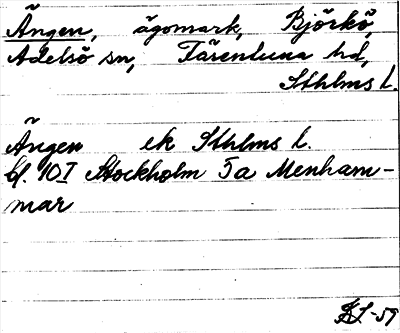 Ängen, ägomark, Björkö,
Adelsö sn, Färentuna hd,
Sthlms l.
Ängen ek Sthlms l.
bl. 10I Stockholm 5a Menham-
mar
-59